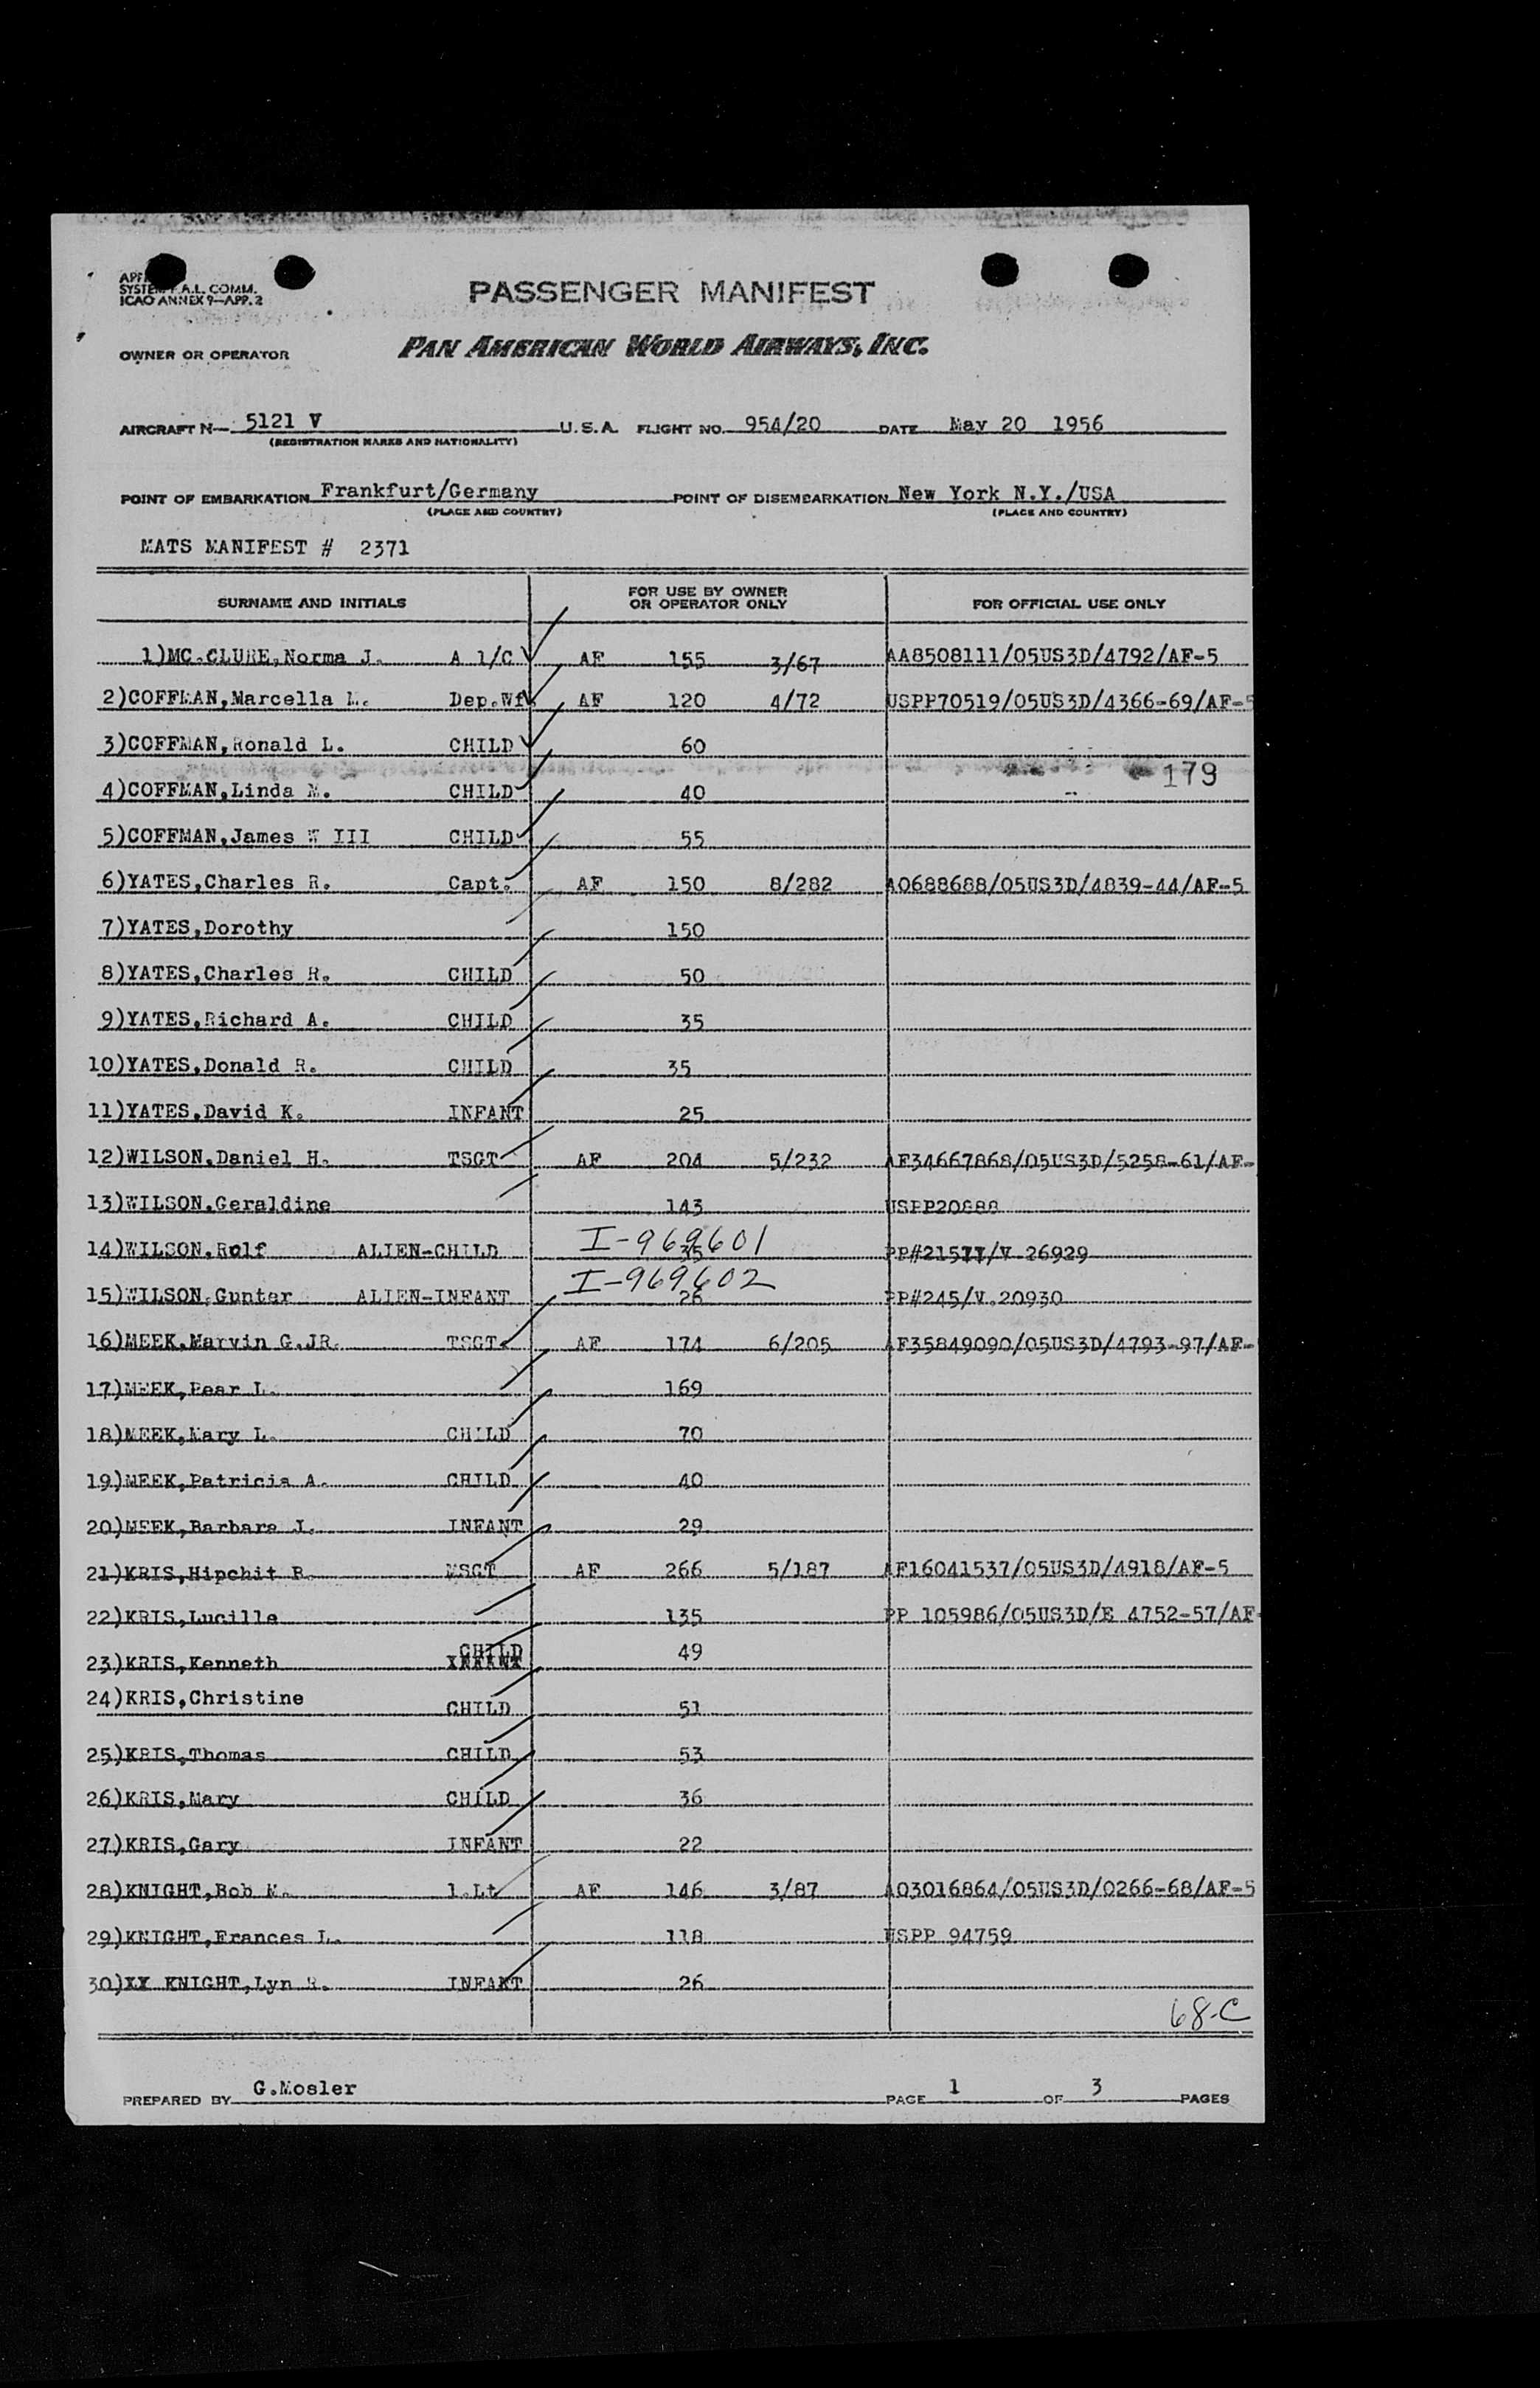 SYSTEM F.A.L. COMM.
ICAO ANNEX 9—APP. 2
PASSENGER MANIFEST
OWNER OR OPERATOR PAN AMERICAN WORLD AIRWAYS, INC.
AIRCRAFT N— 5121 V U.S.A. FLIGHT NO. 954/20 DATE May 20 1956
(REGISTRATION MARKS AND NATIONALITY)
POINT OF EMBARKATION Frankfurt/Germany POINT OF DISEMBARKATION New York N.Y./USA
(PLACE AND COUNTRY) (PLACE AND COUNTRY)
MATS MANIFEST # 2371
SURNAME AND INITIALS FOR USE BY OWNER OR OPERATOR ONLY FOR OFFICIAL USE ONLY
1)MC.CLURE,Norma J. A 1/C AF 155 3/67 AA8508111/05US3D/4792/AF-5
2)COFFMAN,Marcella L. Dep.Wf AF 120 4/72 USPP70519/05US3D/4366-69/AF-5
3)COFFMAN,Ronald L. CHILD 60
179
4)COFFMAN,Linda M. CHILD 40
5)COFFMAN,James W III CHILD 55
6)YATES,Charles R. Capt. AF 150 8/282 AO688688/05US3D/4839-44/AF-5
7)YATES,Dorothy 150
8)YATES,Charles R. CHILD 50
9)YATES,Richard A. CHILD 35
10)YATES,Donald R. CHILD 35
11)YATES,David K. INFANT 25
12)WILSON,Daniel H. TSGT AF 204 5/232 AF34667868/05US3D/5258-61/AF-
13)WILSON,Geraldine 143 USPP20888
14)WILSON,Rolf ALIEN-CHILD I-969601 35 PP#21577/V 26929
15)WILSON,Gunter ALIEN-INFANT I-969602 26 PP#245/V.20930
16)MEEK,Marvin G.JR. TSGT. AF 174 6/205 AF35849090/05US3D/4793-97/AF-
17)MEEK,Pear L. 169
18)MEEK,Mary L. CHILD 70
19)MEEK,Patricia A. CHILD 40
20)MEEK,Barbara J. INFANT 29
21)KRIS,Hipchit B. MSGT AF 266 5/187 AF16041537/05US3D/4918/AF-5
22)KRIS,Lucille 135 PP 105986/05US3D/E 4752-57/AF-
23)KRIS,Kenneth CHILD 49
24)KRIS,Christine CHILD 51
25)KRIS,Thomas CHILD 53
26)KRIS,Mary CHILD 36
27)KRIS,Gary INFANT 22
28)KNIGHT,Bob M. 1.Lt AF 146 3/87 AO3016864/05US3D/0266-68/AF-5
29)KNIGHT,Frances L. 118 USPP 94759
30)XX KNIGHT,Lyn R. INFANT 26
68-C
PREPARED BY G.Mosler PAGE 1 OF 3 PAGES